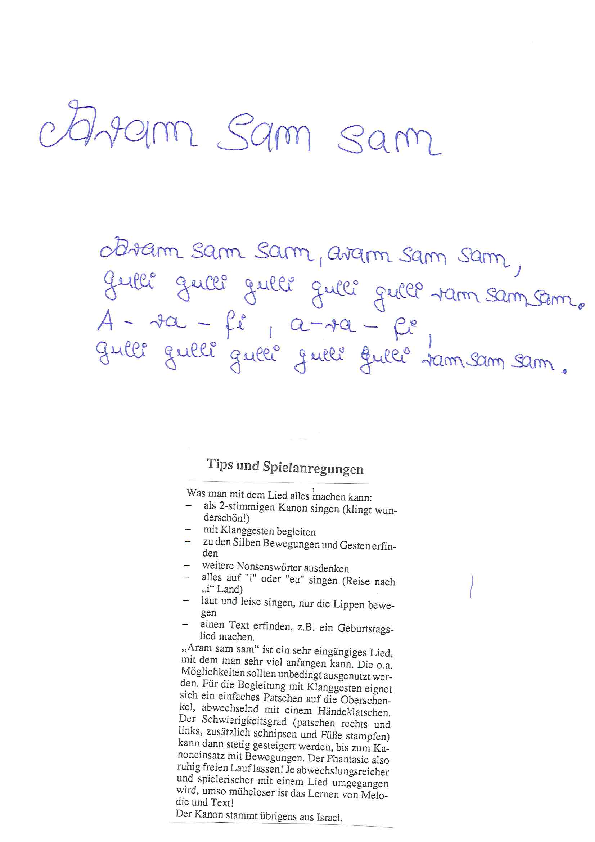 Aram sam sam
Aram sam sam, aram sam sam,
gulli gulli gulli gulli gulli ram sam sam.
A - ra - fi, a - ra - fi,
gulli gulli gulli gulli gulli ram sam sam.
Tips und Spielanregungen
Was man mit dem Lied alles machen kann:
– als 2-stimmigen Kanon singen (klingt wun-
derschön!)
– mit Klanggesten begleiten
– zu den Silben Bewegungen und Gesten erfin-
den
– weitere Nonsenswörter ausdenken
– alles auf "i" oder "eu" singen (Reise nach
„i" Land)
– laut und leise singen, nur die Lippen bewe-
gen
– einen Text erfinden, z.B. ein Geburtstags-
lied machen.
„Aram sam sam" ist ein sehr eingängiges Lied,
mit dem man sehr viel anfangen kann. Die o.a.
Möglichkeiten sollten unbedingt ausgenutzt wer-
den. Für die Begleitung mit Klanggesten eignet
sich ein einfaches Patschen auf die Oberschen-
kel, abwechselnd mit einem Händeklatschen.
Der Schwierigkeitsgrad (patschen rechts und
links, zusätzlich schnipsen und Füße stampfen)
kann dann stetig gesteigert werden, bis zum Ka-
noneinsatz mit Bewegungen. Der Phantasie also
ruhig freien Lauf lassen! Je abwechslungsreicher
und spielerischer mit einem Lied umgegangen
wird, umso müheloser ist das Lernen von Melo-
die und Text!
Der Kanon stammt übrigens aus Israel.